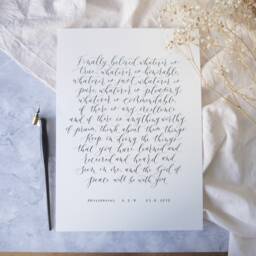 Finally, beloved, whatever is
true, whatever is honorable,
whatever is just, whatever is
pure, whatever is pleasing,
whatever is commendable,
if there is any excellence
and if there is anything worthy
of praise, think about these things.
Keep on doing the things
that you have learned and
received and heard and
seen in me, and the God of
peace will be with you.
PHILIPPIANS 4:8-9